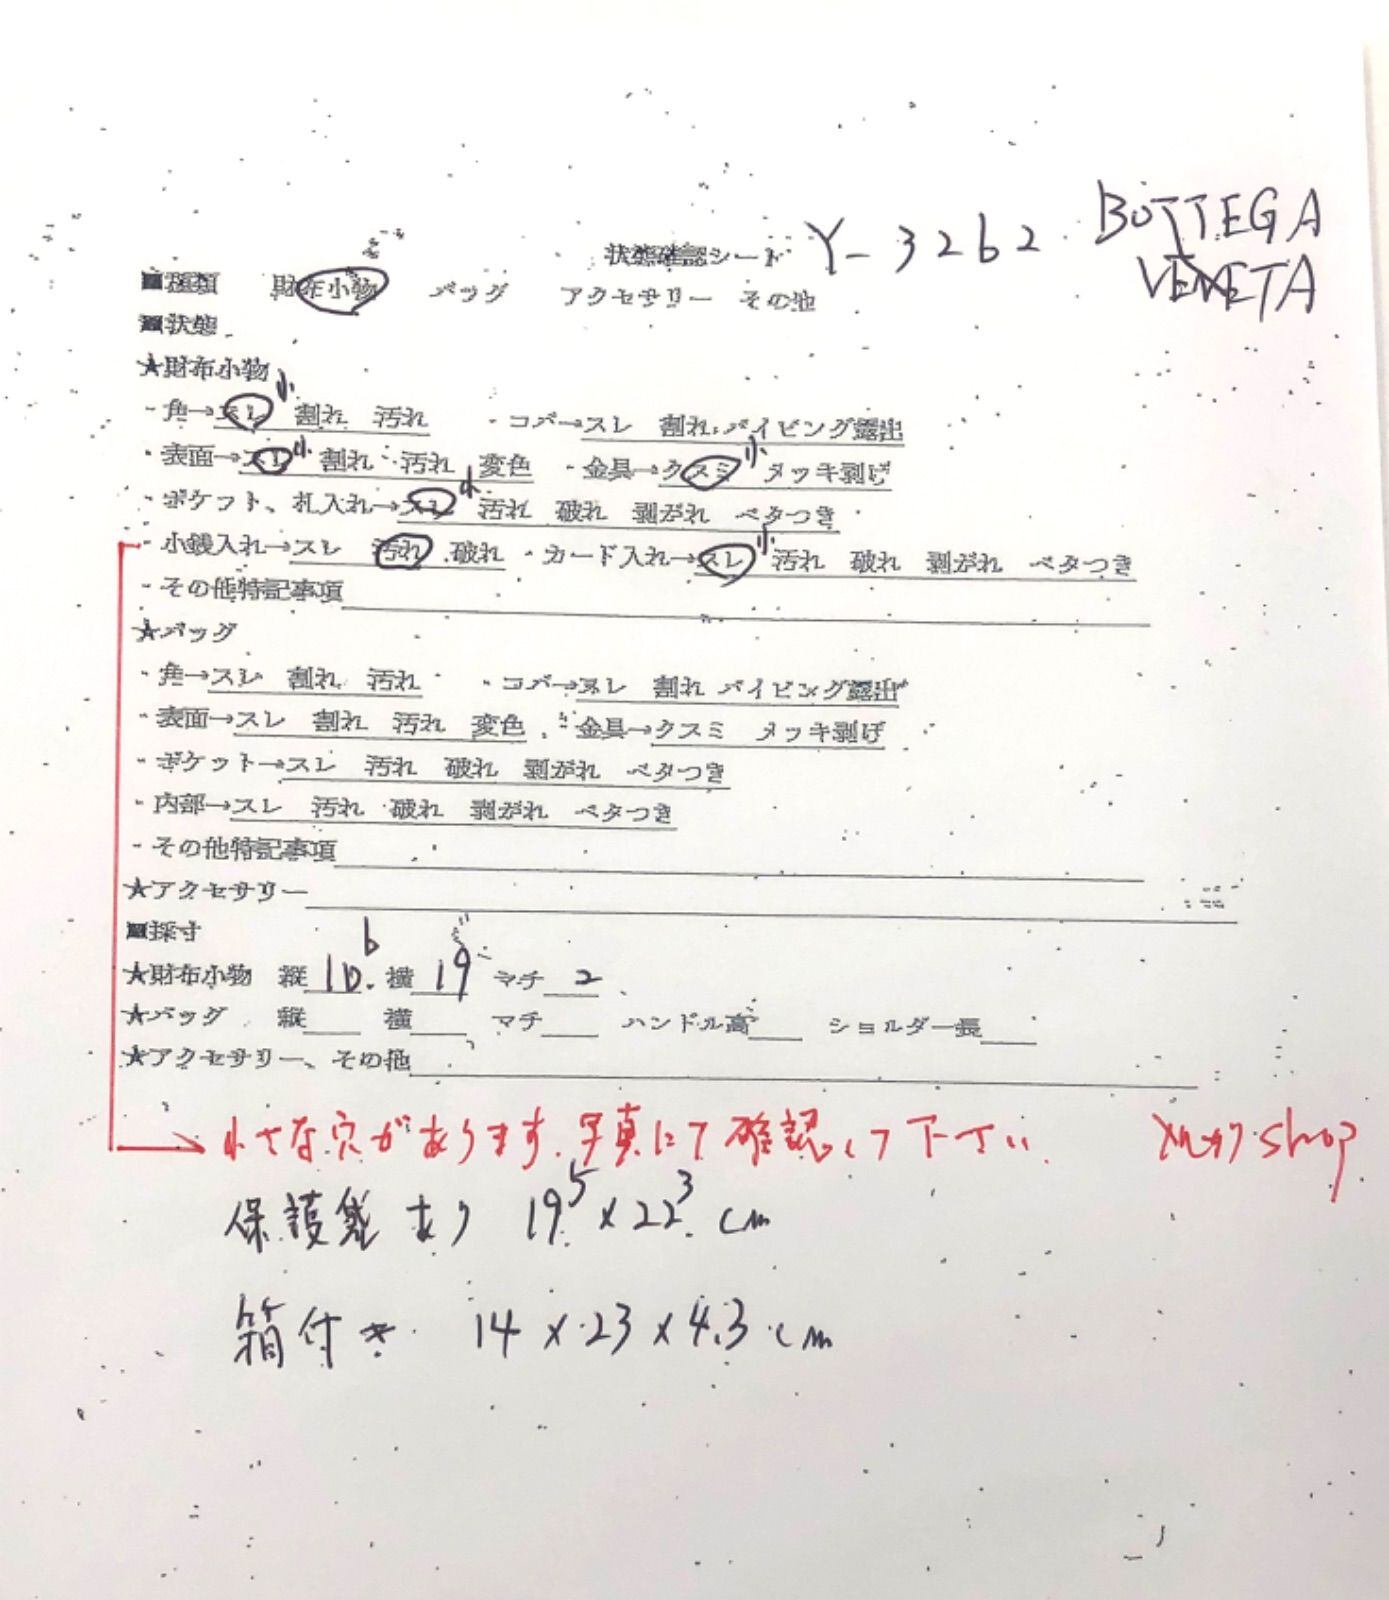 状態確認シート Y-3262 BOTTEGA VENETA
■種類 財布小物 バッグ アクセサリー その他
■状態
★財布小物
・角→スレ 小 割れ 汚れ ・コバ→スレ 割れ パイピング露出
・表面→スレ 小 割れ 汚れ 変色 ・金具→クスミ 小 メッキ剥げ
・ポケット、札入れ→スレ 小 汚れ 破れ 剥がれ ベタつき
・小銭入れ→スレ 汚れ 破れ ・カード入れ→スレ 小 汚れ 破れ 剥がれ ベタつき
・その他特記事項
★バッグ
・角→スレ 割れ 汚れ ・コバ→スレ 割れ パイピング露出
・表面→スレ 割れ 汚れ 変色 ・金具→クスミ メッキ剥げ
・ポケット→スレ 汚れ 破れ 剥がれ ベタつき
・内部→スレ 汚れ 破れ 剥がれ ベタつき
・その他特記事項
★アクセサリー
■採寸
★財布小物 縦 10.6 横 19 マチ 2
★バッグ 縦 横 マチ ハンドル高 ショルダー長
★アクセサリー、その他
小さな穴があります.写真にて確認して下さい. shop
保護袋あり 19.5×22.3cm
箱付き 14×23×4.3cm